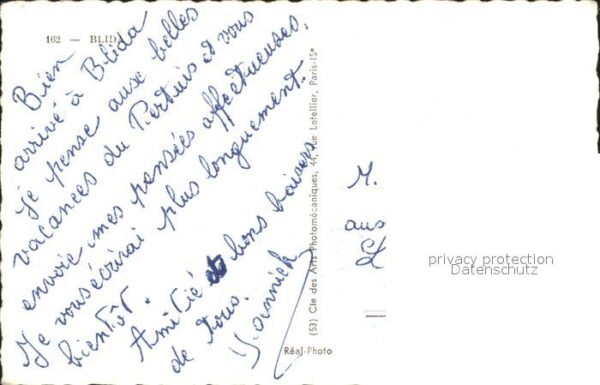 162 — BLIDA
Bien
arrivé à Blida
Je pense aux belles
vacances du Pertuis et vous
envoie mes pensées affectueuses.
Je vous écrirai plus longuement.
bientôt.
Amitié et bons baisers
de tous.
Yannick
(53) Cie des Arts Photomécaniques, 44, rue Letellier, Paris-15e
Réal-Photo
M.
aus
privacy protection
Datenschutz